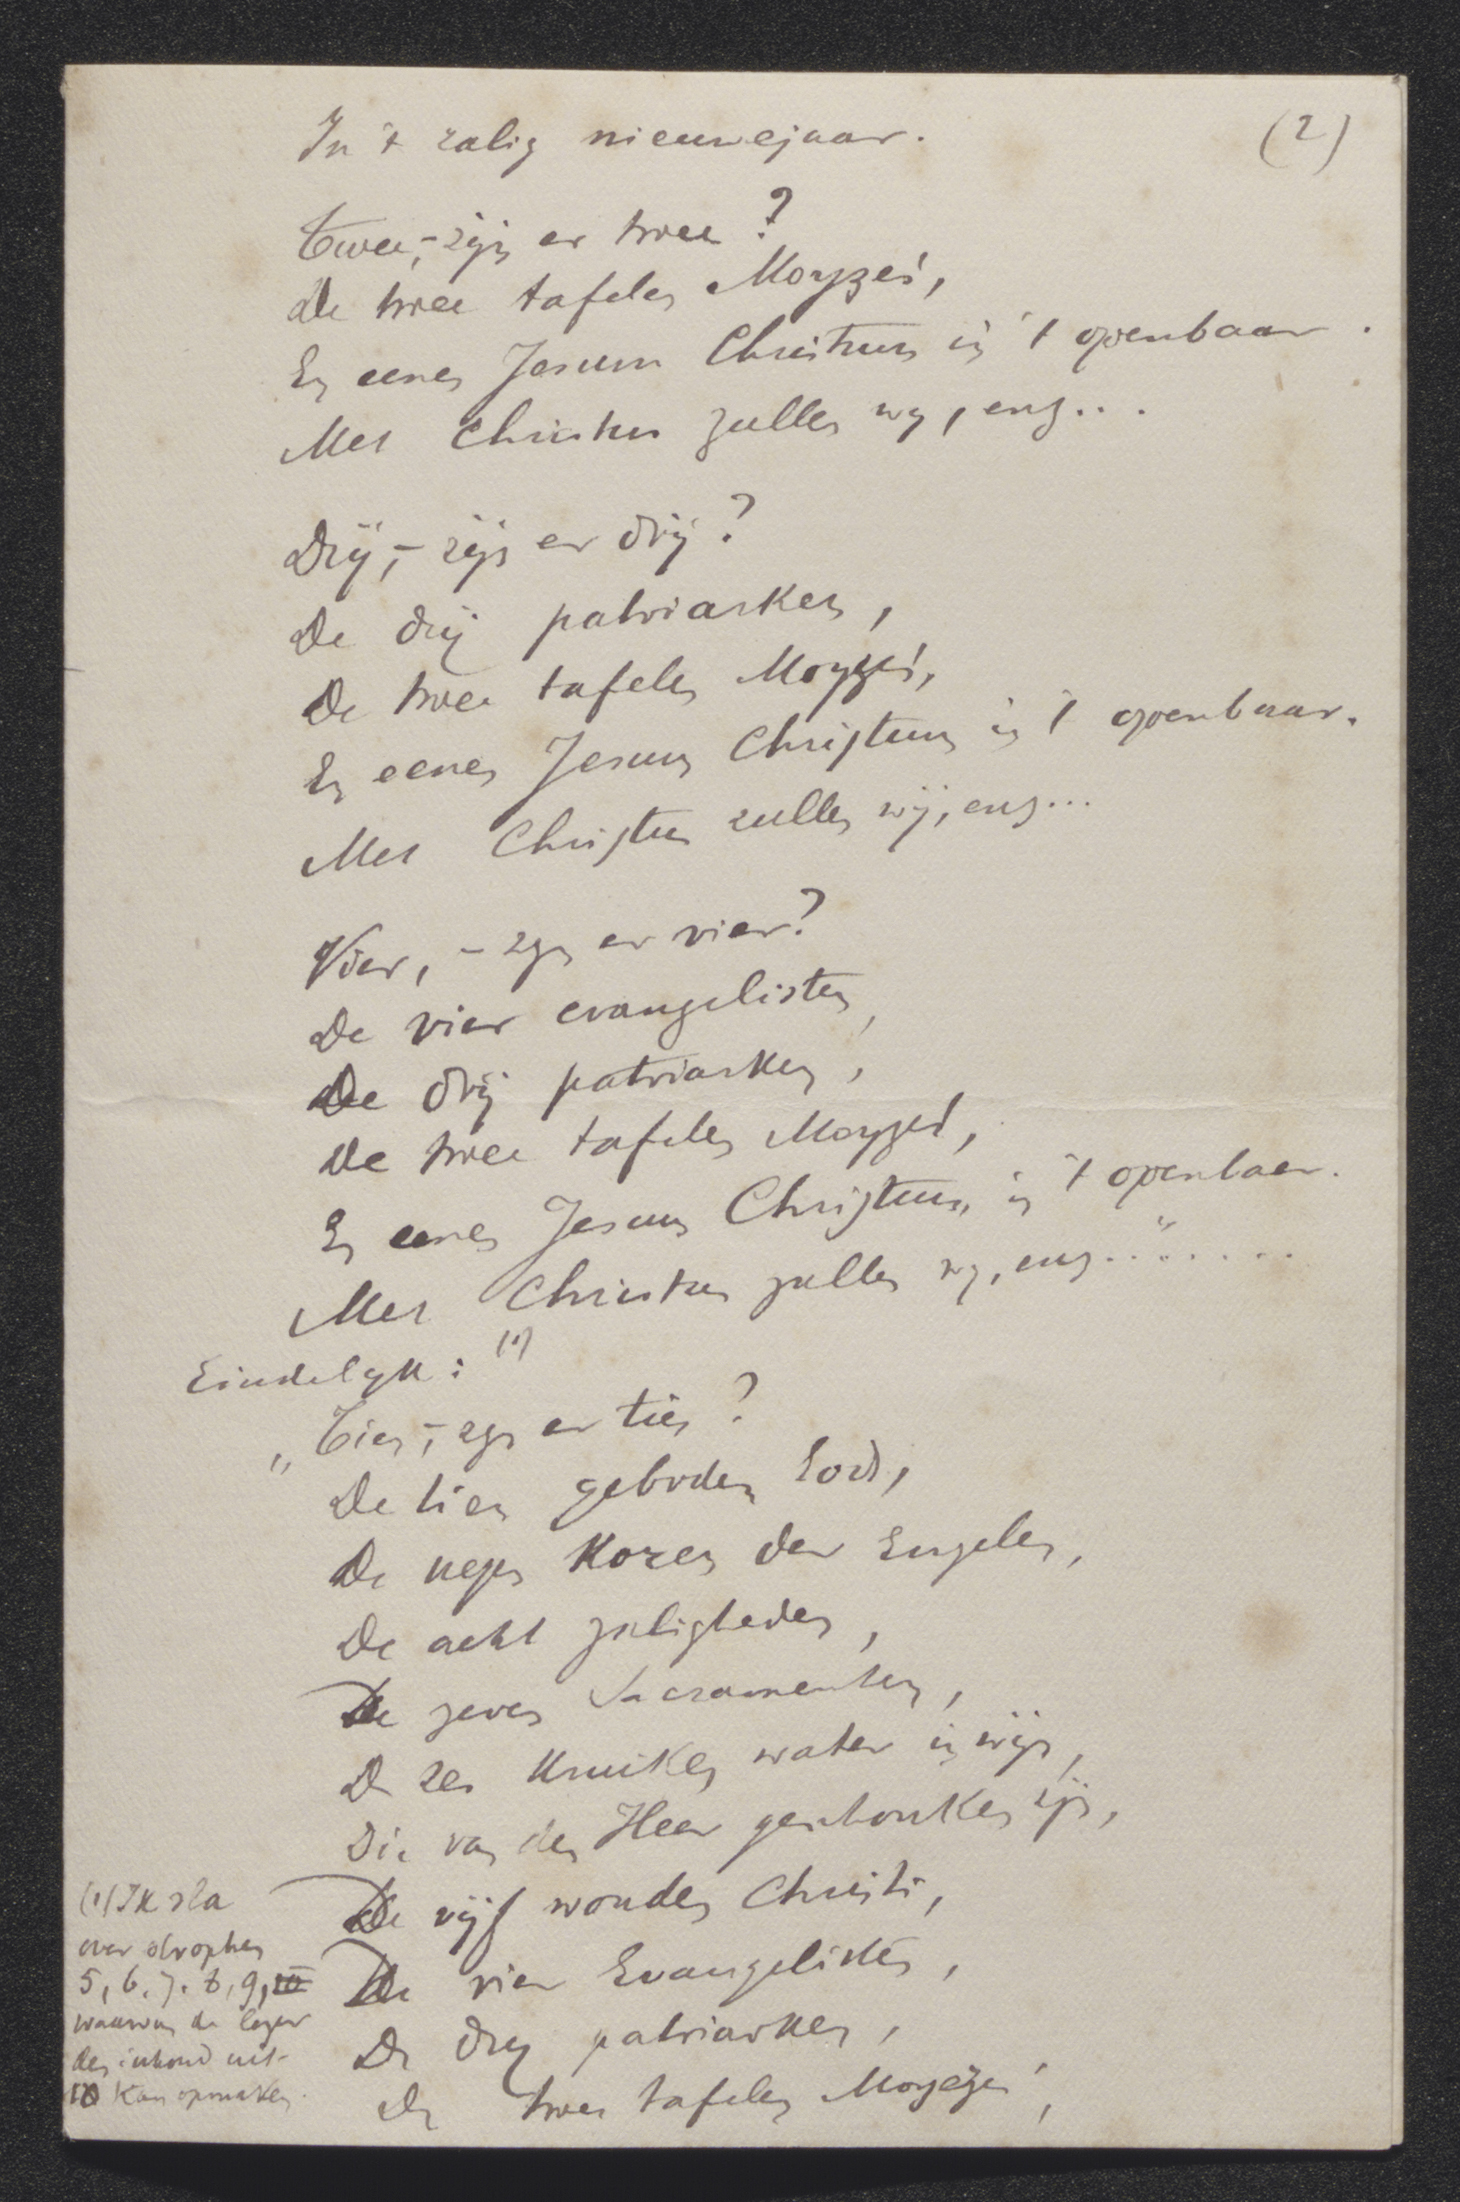 In 't zalig nieuwejaar.
(2)
Twee, - zijn er twee?
De twee tafelen Moyzes,
En eenen Jesum Christum in 't openbaar.
Met Christus zullen wy, enz...
Drij, - zijn er drij?
De drij patriarken,
De twee tafelen Moyzes,
En eenen Jesum Christum in 't openbaar.
Met Christus zullen wij, enz...
Vier, - zyn er vier?
De vier evangelisten,
De drij patriarken,
De twee tafelen Moyzes,
En eenen Jesum Christum, in 't openbaar.
Met Christus zullen wy, enz..."....
Eindelyk: (1)
„Tien, - zyn er tien?
De tien geboden Gods,
De negen Koren der Engelen,
De acht zaligheden,
De zeven Sacramenten,
De zes Kruiken water in wijn,
Die van den Heer geschonken zijn,
De vijf wonden Christi,
De vier Evangelisten,
De drij patriarken,
De twee tafelen Moyzes,
(1) Ik sla
over strophen
5, 6, 7, 8, 9, 10
waarvan de lezer
den inhoud uit
10 kan opmaken.